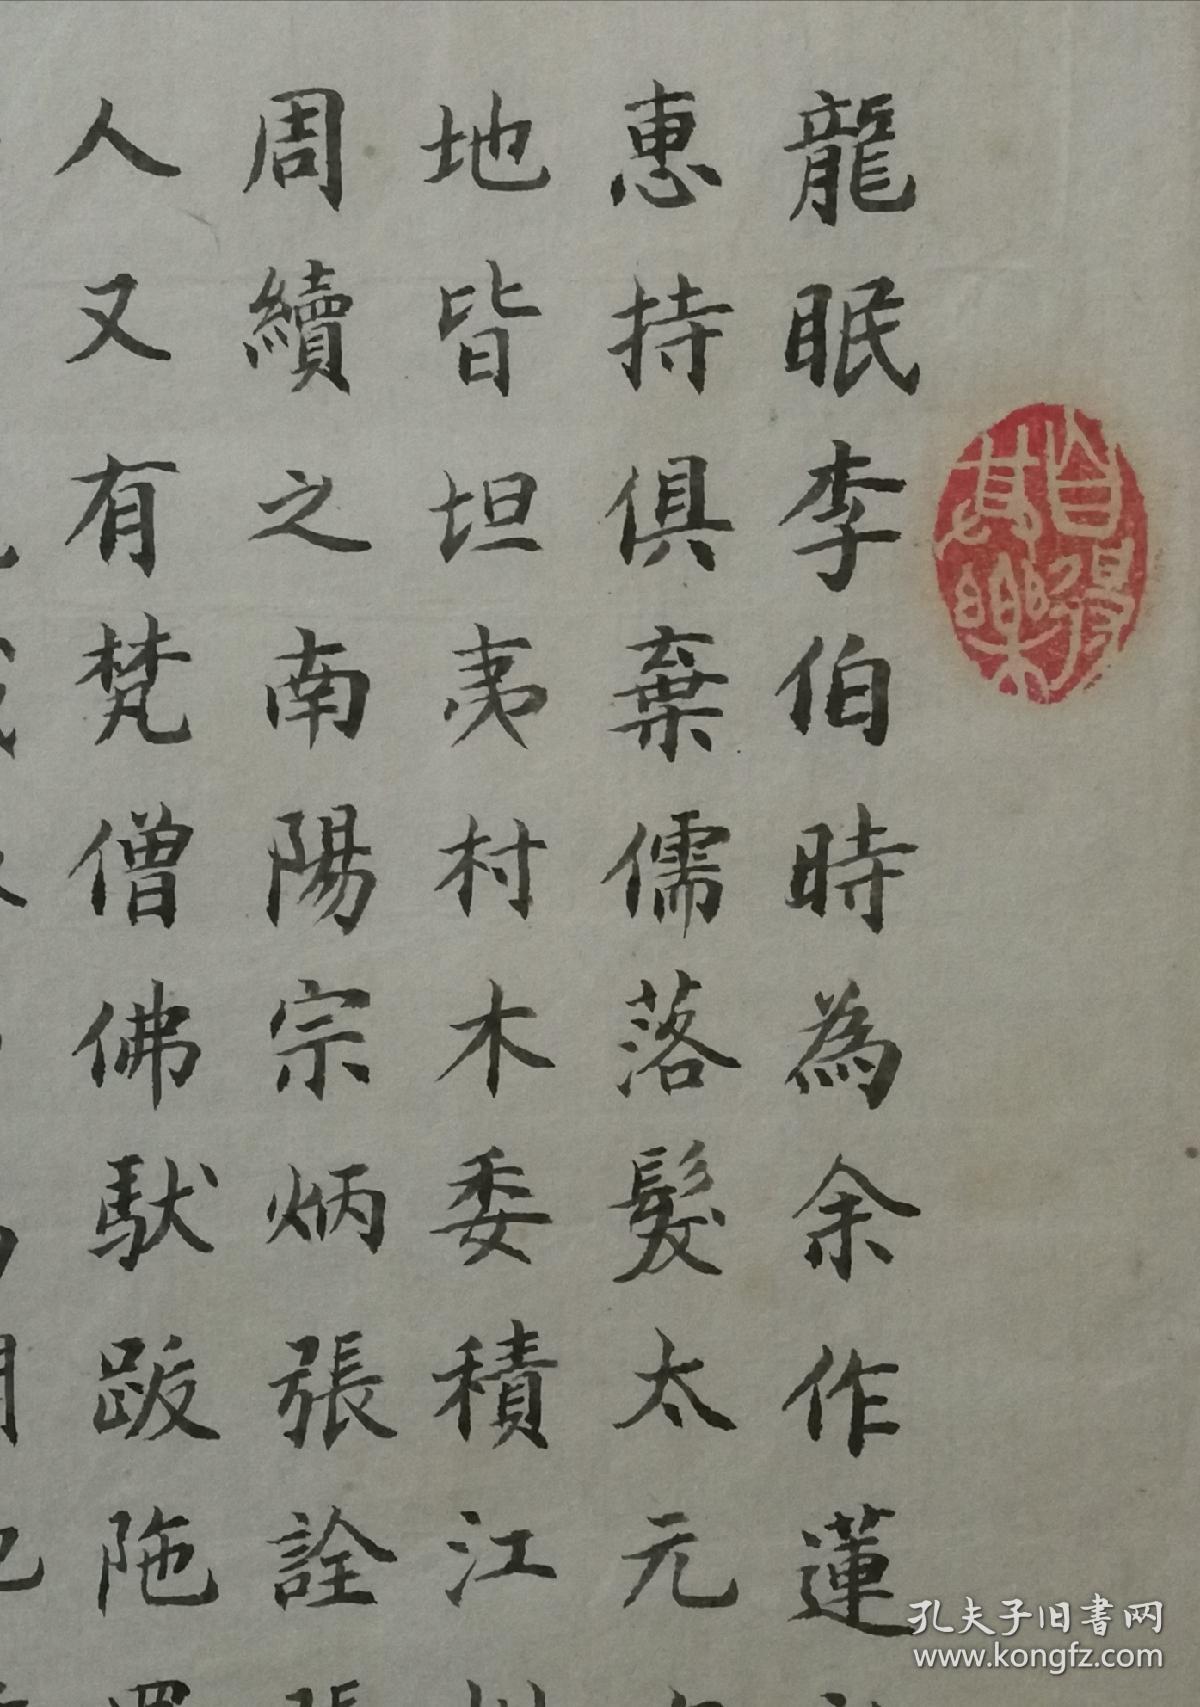 龍眠李伯時為余作蓮
惠持俱棄儒落髮太元
地皆坦夷村木委積江
周續之南陽宗炳張詮
人又有梵僧佛馱跋陁
自得其樂
孔夫子旧書网
www.kongfz.com